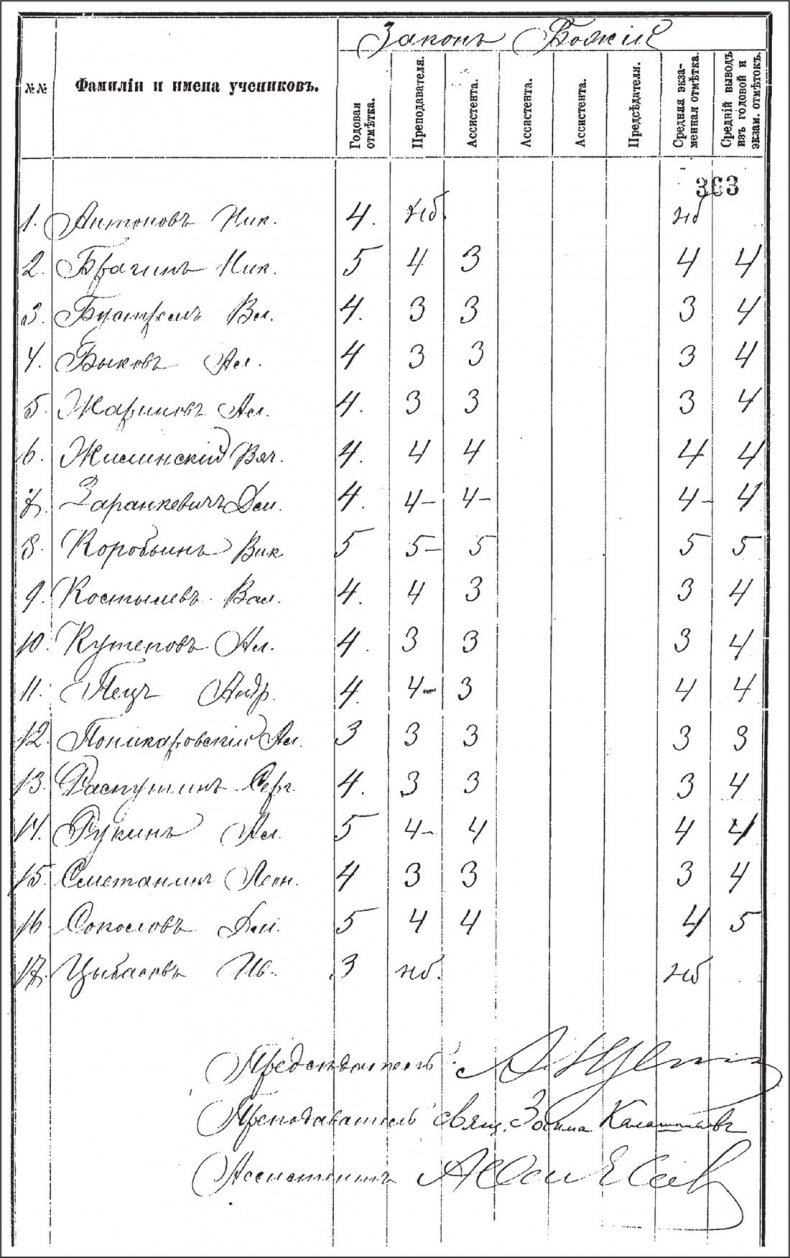 Законъ Божій
№№ Фамиліи и имена учениковъ. Годовая отмѣтка. Преподавателя. Ассистента. Ассистента. Ассистента. Предсѣдателя. Средняя экзаменная отмѣтка. Средній выводъ изъ годовой и экзам. отмѣтокъ.
363
1. Антоновъ Ник. 4. нб. нб
2. Брагинъ Ник. 5 4 3 4 4
3. Бустремъ Вл. 4. 3 3 3 4
4. Быковъ Ал. 4 3 3 3 4
5. Жариковъ Ал. 4. 3 3 3 4
6. Жилинскій Вяч. 4. 4 4 4 4
7. Заранкевичъ Дм. 4. 4- 4- 4- 4
8. Коробьинъ Вик 5 5- 5 5 5
9. Костылевъ Вал. 4. 4 3 3 4
10. Кутеповъ Ал. 4. 3 3 3 4
11. Пецъ Андр. 4. 4- 3 4 4
12. Поникаровскій Ал. 3 3 3 3 3
13. Распутинъ Серг. 4. 3 3 3 4
14. Рукинъ Ал. 5 4- 4 4 4
15. Сметанинъ Леон. 4 3 3 3 4
16. Соколовъ Дм. 5 4 4 4 5
17. Ив. 3 нб. нб
Предсѣдатель
Преподаватель Свящ. Зосима
Ассистентъ